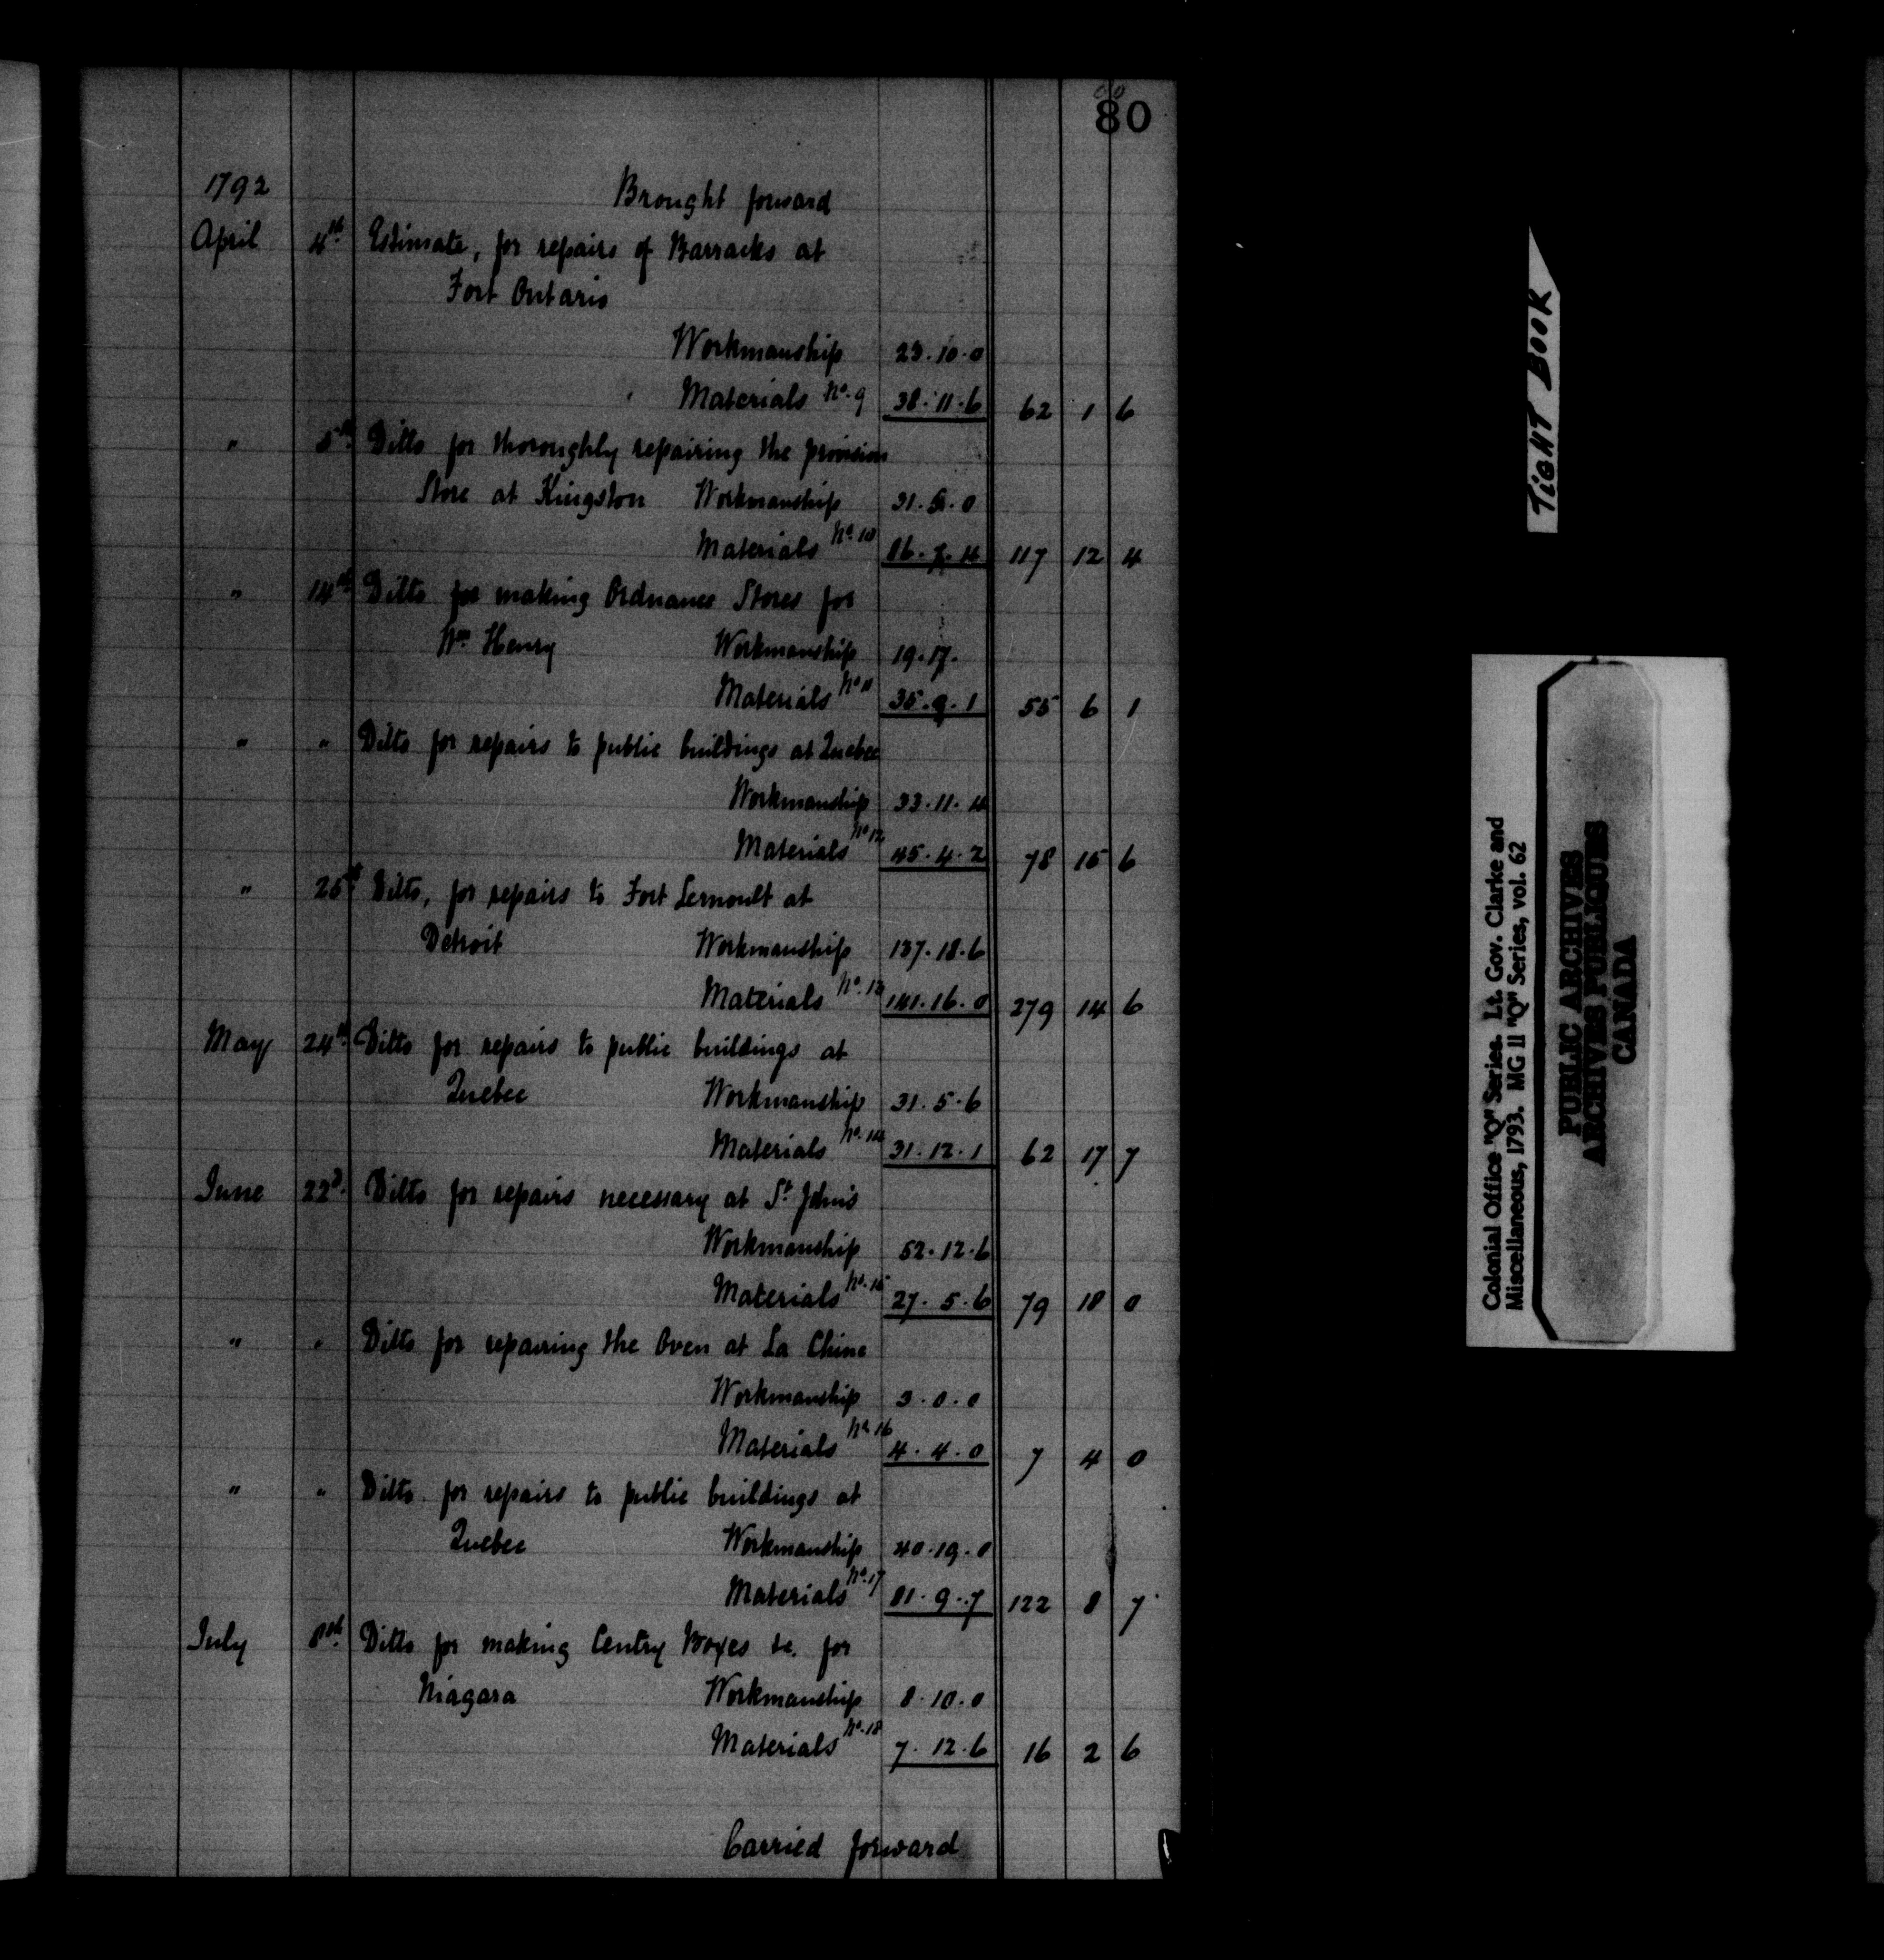 80
1792 Brought forward
April 4th Estimate, for repairs of Barracks at
Fort Ontario
Workmanship 23.10.0
Materials No. 9 38.11.6 62 1 6
" 5th Ditto for thoroughly repairing the provision
Store at Kingston Workmanship 31.5.0
Materials No. 10 86.7.4 117 12 4
" 14th Ditto for making Ordnance Stores for
Wm Henry Workmanship 19.17.
Materials No 11 35.9.1 55 6 1
" " Ditto for repairs to public buildings at Quebec
Workmanship 33.11.4
Materials No 12 45.4.2 78 15 6
" 25th Ditto, for repairs to Fort Lernoult at
Detroit Workmanship 137.18.6
Materials No. 13 141.16.0 279 14 6
May 24th Ditto for repairs to public buildings at
Quebec Workmanship 31.5.6
Materials No. 14 31.12.1 62 17 7
June 22d Ditto for repairs necessary at St Johns
Workmanship 52.12.6
Materials No. 15 27.5.6 79 18 0
" " Ditto for repairing the Oven at La Chine
Workmanship 3.0.0
Materials No 16 4.4.0 7 4 0
" " Ditto for repairs to public buildings at
Quebec Workmanship 40.19.0
Materials No. 17 81.9.7 122 8 7
July 8th Ditto for making Centry Boxes &c. for
Niagara Workmanship 8.10.0
Materials No. 18 7.12.6 16 2 6
Carried forward
TIGHT BOOK
Colonial Office "Q" Series. Lt. Gov. Clarke and
Miscellaneous, 1793. MG 11 "Q" Series, vol. 62
PUBLIC ARCHIVES
ARCHIVES PUBLIQUES
CANADA